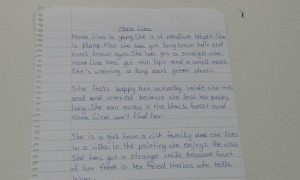 Mona Lisa
Mona Lisa is young. She is of medium height. She
is slong. Also she has got long brown hair and
oval brown eyes. She has got a straight nose.
Mona Lisa has got thin lips and a small mouth.
She's wearing a long dark green dress.
She feels happy but actually inside she is
sad and worried because she lost her puppy
Lucy. She ran away in the black forest and
Mona Lisa can't find her.
She is a girl from a rich family and she lives
in a villa. In the painting she enjoys the view.
She has got a strange smile because front
of her there is her friend Markos who tells